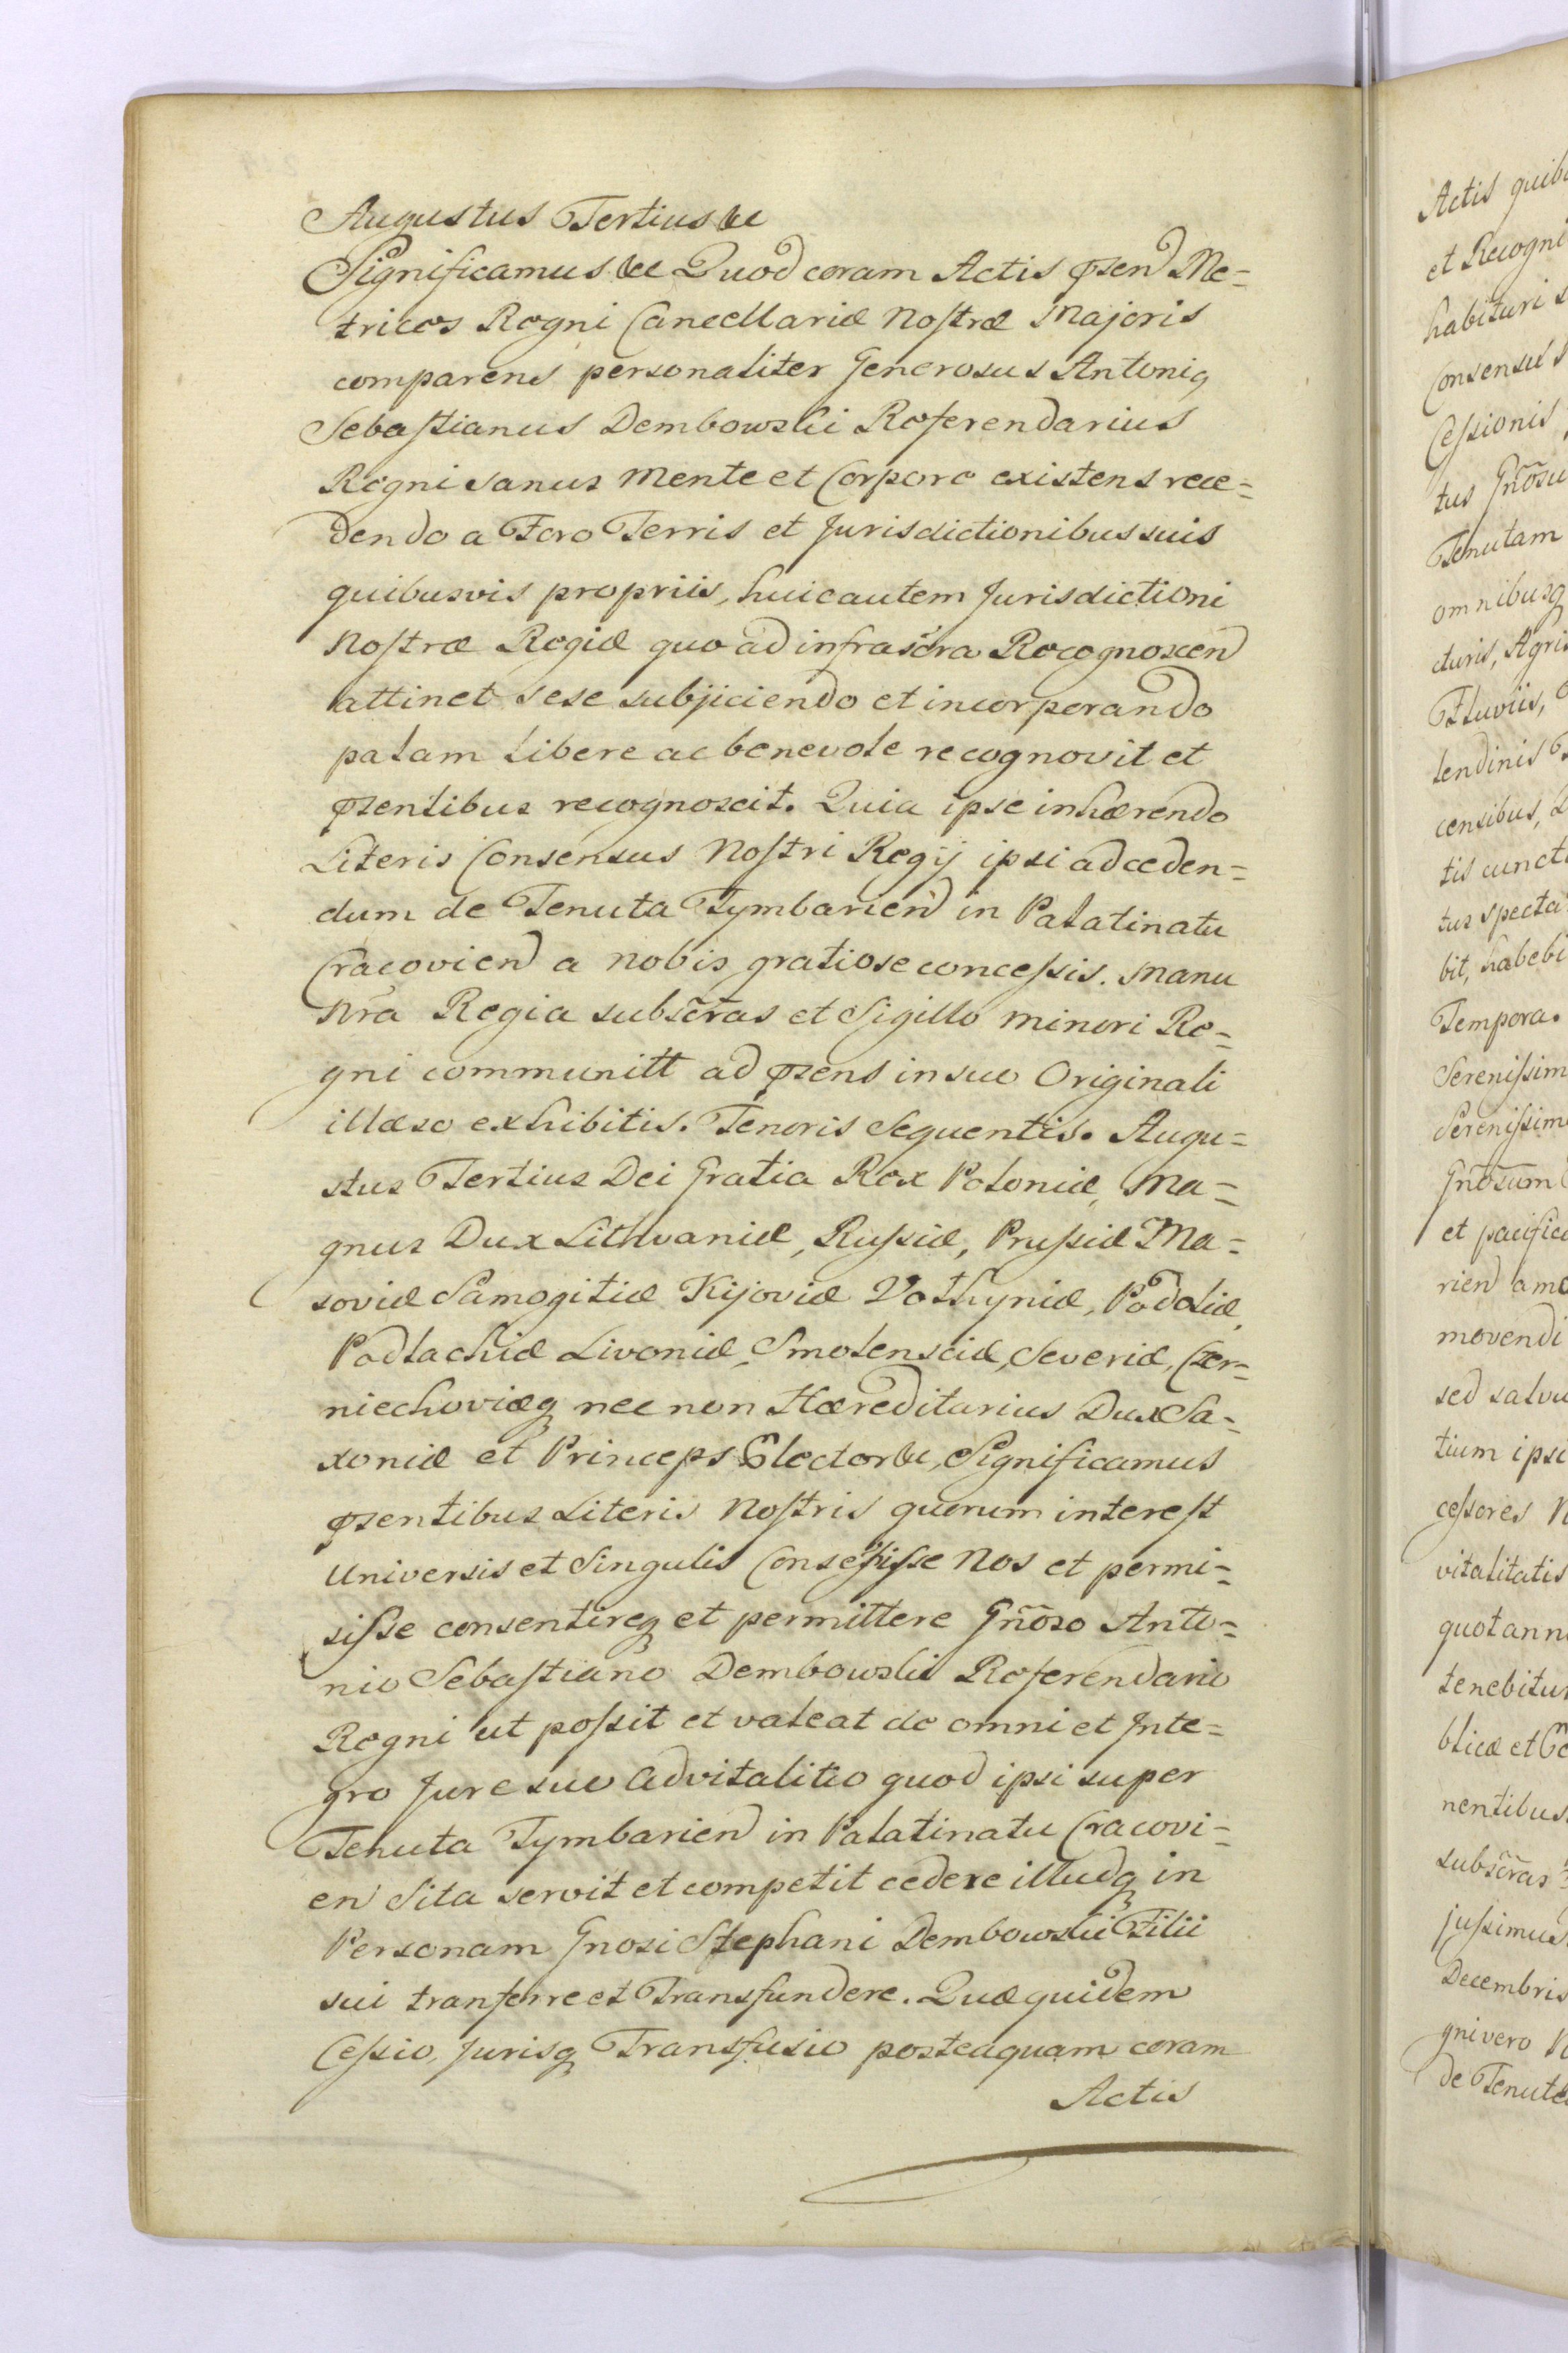 Augustus Tertius &c
Significamus &c Quod coram Actis pͬsen̄d Me=
trices Regni Cancellariæ Nostræ Majoris
comparens personaliter Generosus Antoniꝯ
Sebastianus Dembowski Referendarius
Regni sanus mente et Corpore existens rece=
dendo a Foro Terris et Jurisdictionibus suis
quibusvis propriis, huic autem Jurisdictioni
Nostræ Regiæ quo ad infrascr̄a Recognoscen̄d
attinet sese subjiciendo et incorporando
palam libere ac benevole recognovit et
pͬsentibus recognoscit. Quia ipse inhærendo
Literis Consensus Nostri Regij ipsi ad ceden=
dum de Tenuta Tymbarien̄d in Palatinatu
Cracovien̄d a nobis gratiose concessis. Manu
Nr̄a Regia subscr̄as et Sigillo minori Re=
gni communitt ad pͬsens in suo Originali
illæso exhibitis. Tenoris Sequentis. Augu=
stus Tertius Dei Gratia Rex Poloniæ, Ma=
gnus Dux Lithvaniæ, Russiæ, Prussiæ Ma=
soviæ Samogitiæ Kijoviæ Volhyniæ, Podoliæ,
Podlachiæ Livoniæ, Smolensciæ, Severiæ, Czer=
niechoviæqꝫ nec non Hæreditarius Dux Sa=
xoniæ et Princeps Elector &c, Significamus
pͬsentibus Literis Nostris quorum interest
Universis et Singulis Consensisse Nos et permi=
sisse consentireqꝫ et permittere Gn̄oso Anto=
nio Sebastiano Dembowski Referendario
Regni ut possit et valeat de omni et Inte=
gro Jure suo Advitalitio quod ipsi super
Tenuta Tymbarien̄d in Palatinatu Cracovi=
en̄ Sita servit et competit cedere illudqꝫ in
Personam Gnosi Stephani Dembowskii Filii
sui tranferre et Transfundere. Quæ quidem
Cessio, Jurisqꝫ Transfusio posteaquam coram
Actis
Actis quib
et Recogni
habituri s
Consensu
Cessionis
tus Gn̄osu
Tenutam
omnibusqꝫ
cturis, Agri
Fluviis,
tendinis
censibus, L
tis cuncti
tus specta
bit, habebi
Tempora.
Serenissim
Serenissim
Gn̄osum
et pacifice
rien̄d amo
movendi
sed salvu
tium ipsi
cessores N
vitalitatis
quotann
tenebitur
blicæ et
nentibus
subscr̄as
jussimus
Decembris
gni vero
de Tenuta